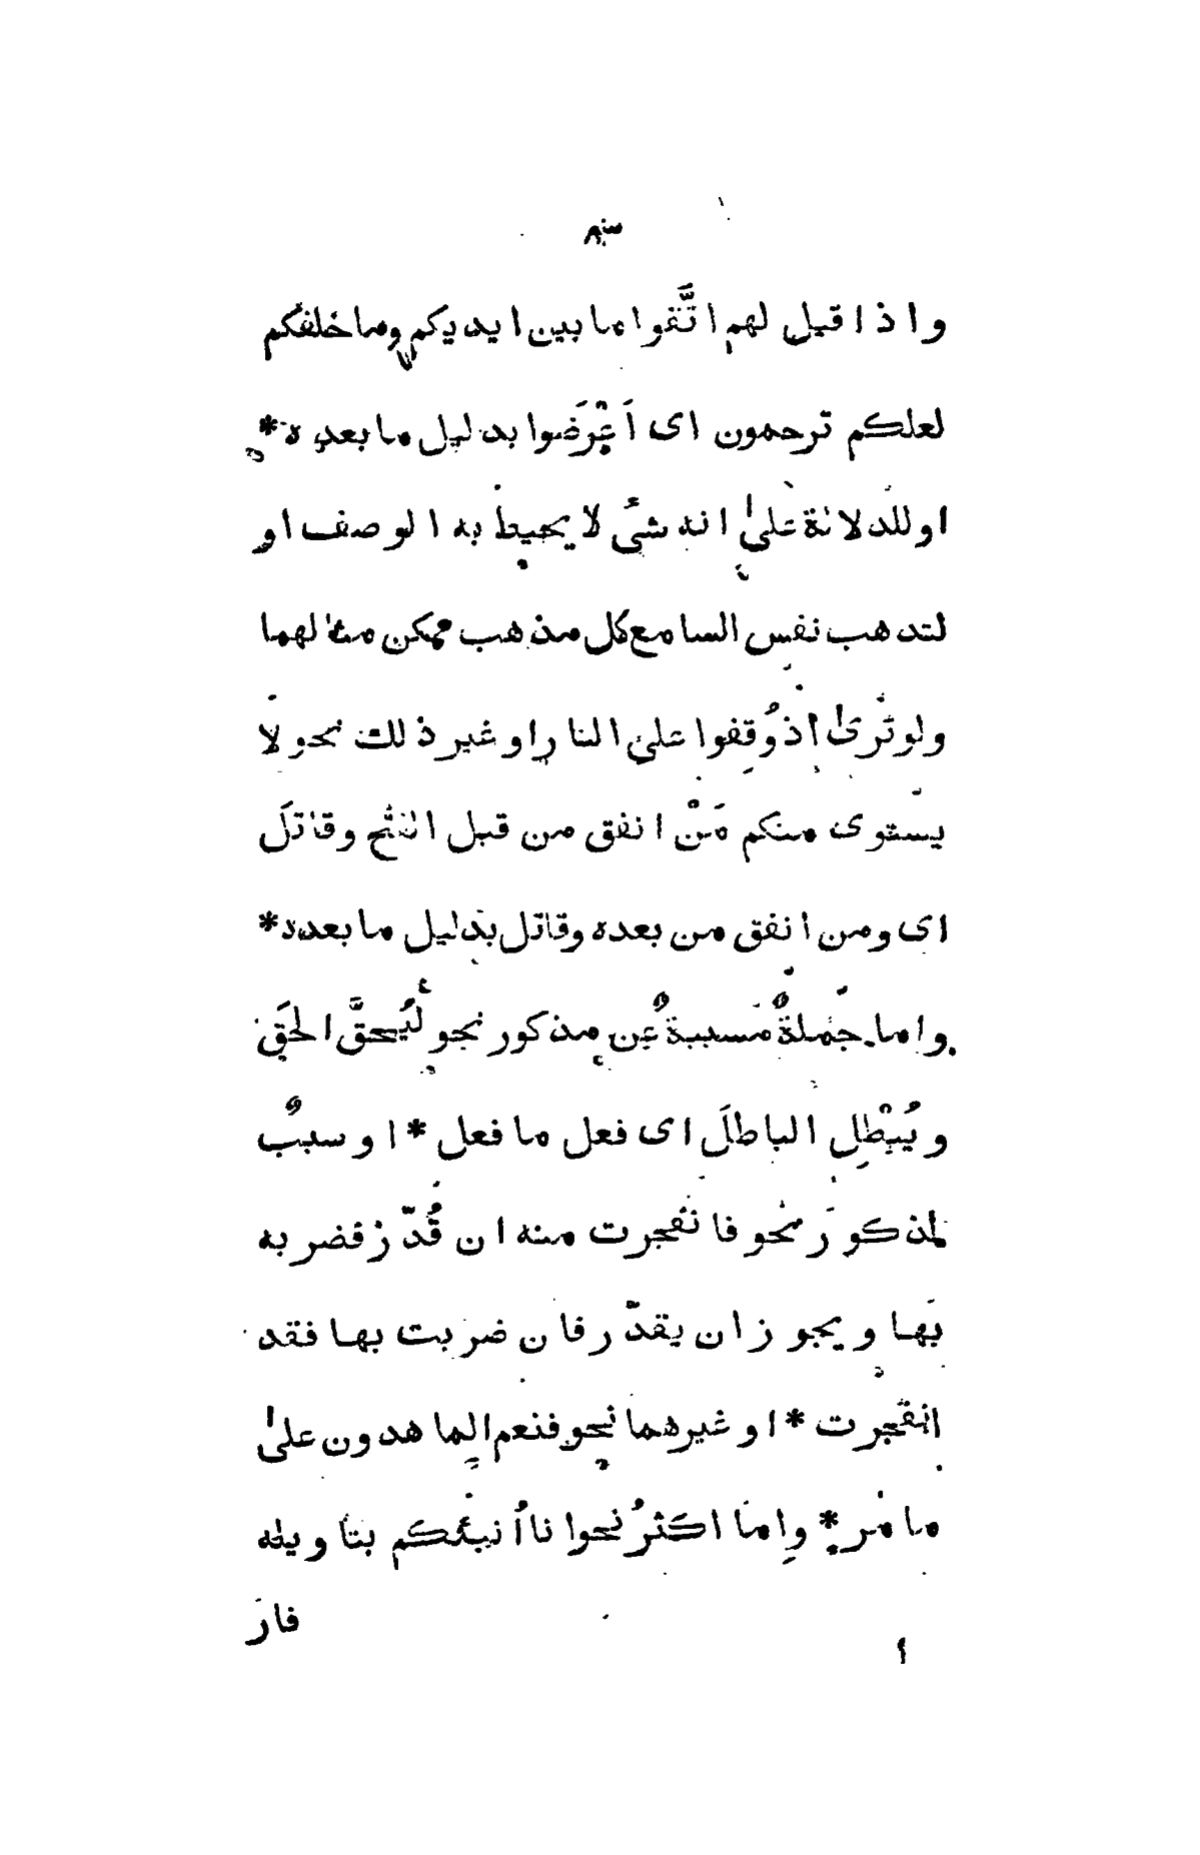 واذا قيل لهم اتَّقوا ما بين ايديكم وما خلفكم
لعلكم ترحمون اى اَعْرَضوا بدليل ما بعده *
او للدلالة على انه شئ لا يحيط به الوصف او
لتذهب نفس السامع كل مذهب ممكن مثالهما
ولو ترى اذ وُقِفوا على النار او غير ذلك نحو لا
يستوى منكم مَنْ انفق من قبل الفتح وقاتلَ
اى ومن انفق من بعده وقاتل بدليل ما بعده *
واما جملةٌ مسببةٌ عن مذكور نحو ليُحقَّ الحقَ
ويُبْطِل الباطلَ اى فعل ما فعل * او سببٌ
لمذكور نحو فانفجرت منه ان قُدّر فضربه
بها ويجوز ان يقدّر فان ضربت بها فقد
انفجرت * او غيرهما نحو فنعم الماهدون على
ما مر * واِما اكثرُ نحو انا اُنبئكم بتأويله
فار